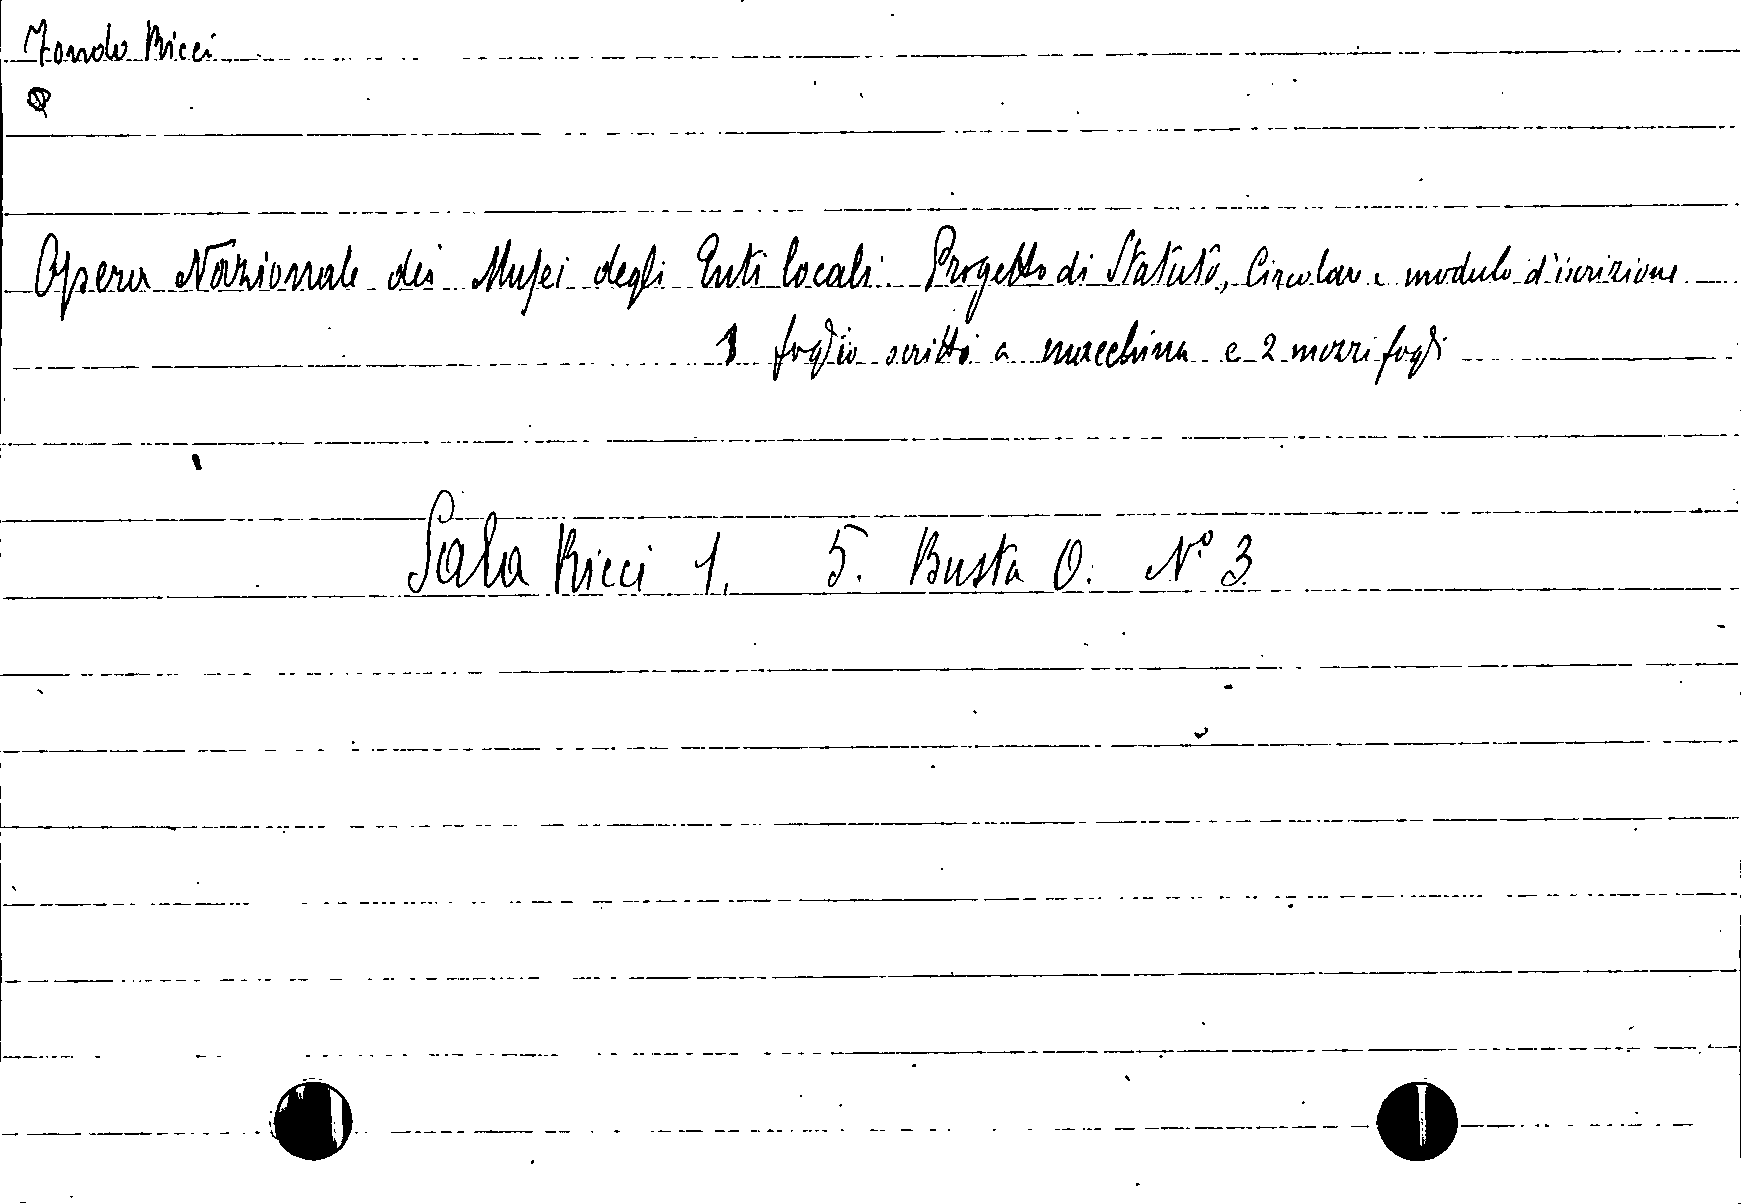 Fondo Ricci
Opera Nazionale dei Musei degli Enti locali. Progetto di Statuto, Circolare e modulo d'iscrizione
1 foglio scritto a macchina e 2 mezzi fogli
Sala Ricci 1. 5. Busta O. N.º 3